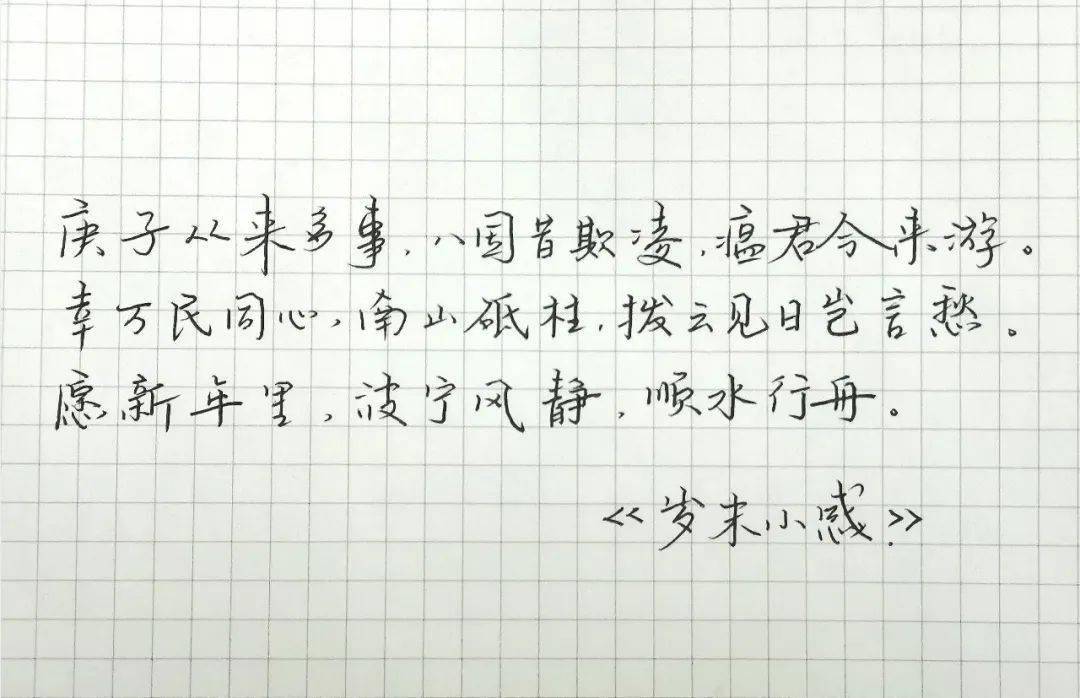 庚子从来多事，八国昔欺凌，瘟君今来游。
幸万民同心，南山砥柱，拨云见日岂言愁。
愿新年里，波宁风静，顺水行舟。
《岁末小感》